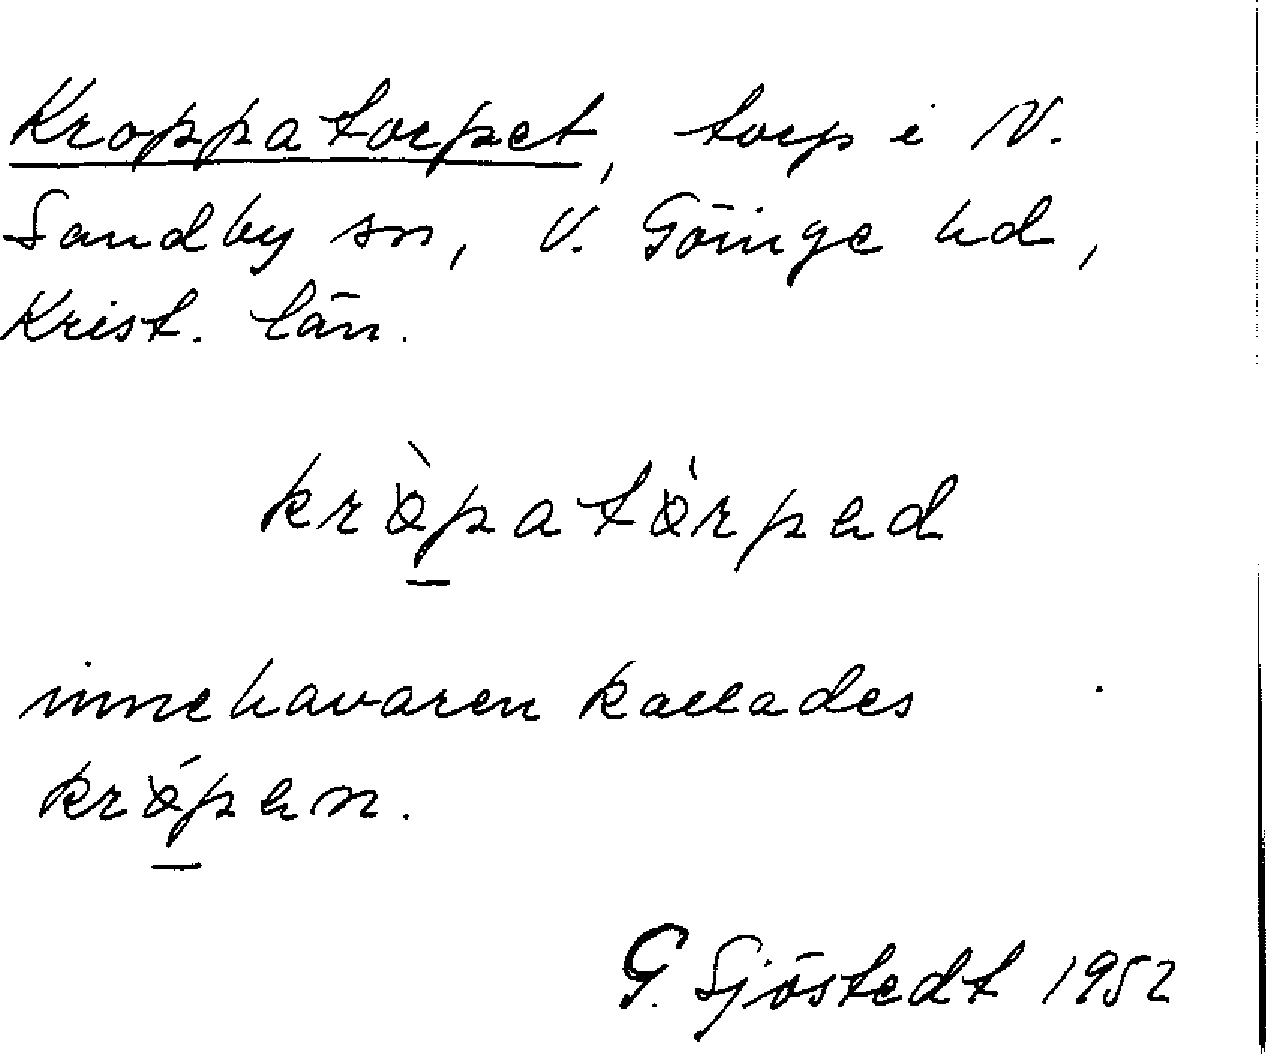 Kroppatorpet, torp i N.
Sandby sn, V. Göinge hd,
Krist. län.
innehavaren kallades
G. Sjöstedt 1952